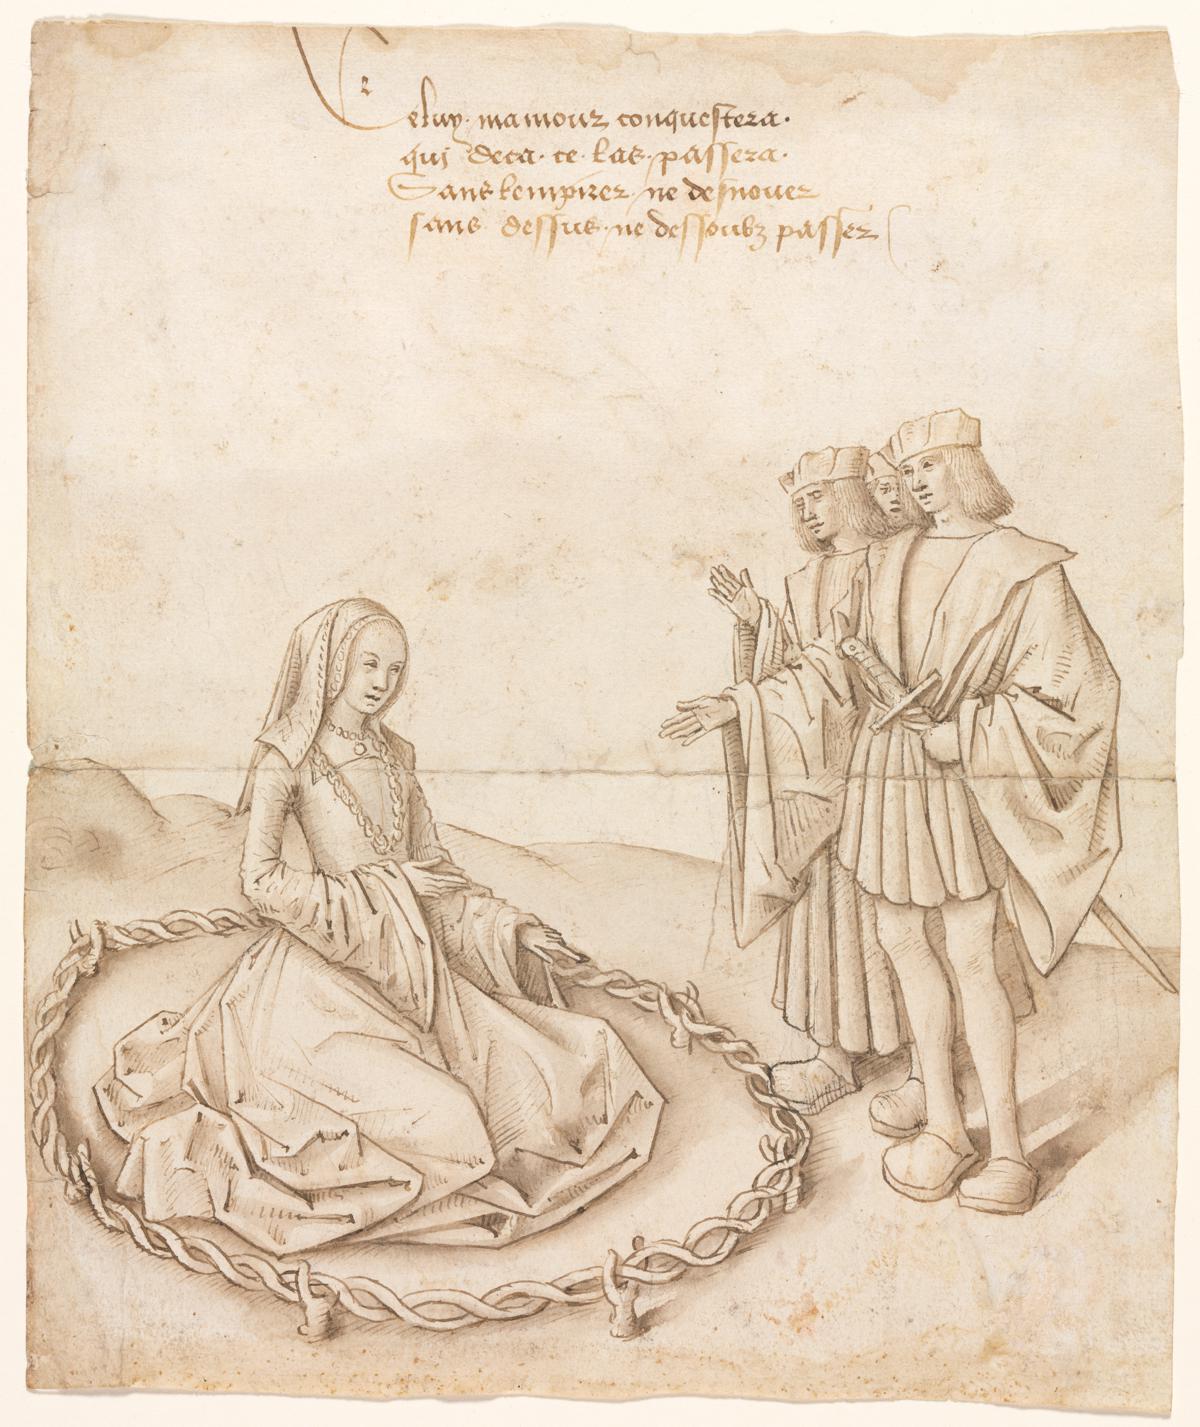 Celuy mamour conquestera.
qui deca. ce. las. passera.
Sans lempirer ne desnouer
sans dessus. ne dessoubz passer